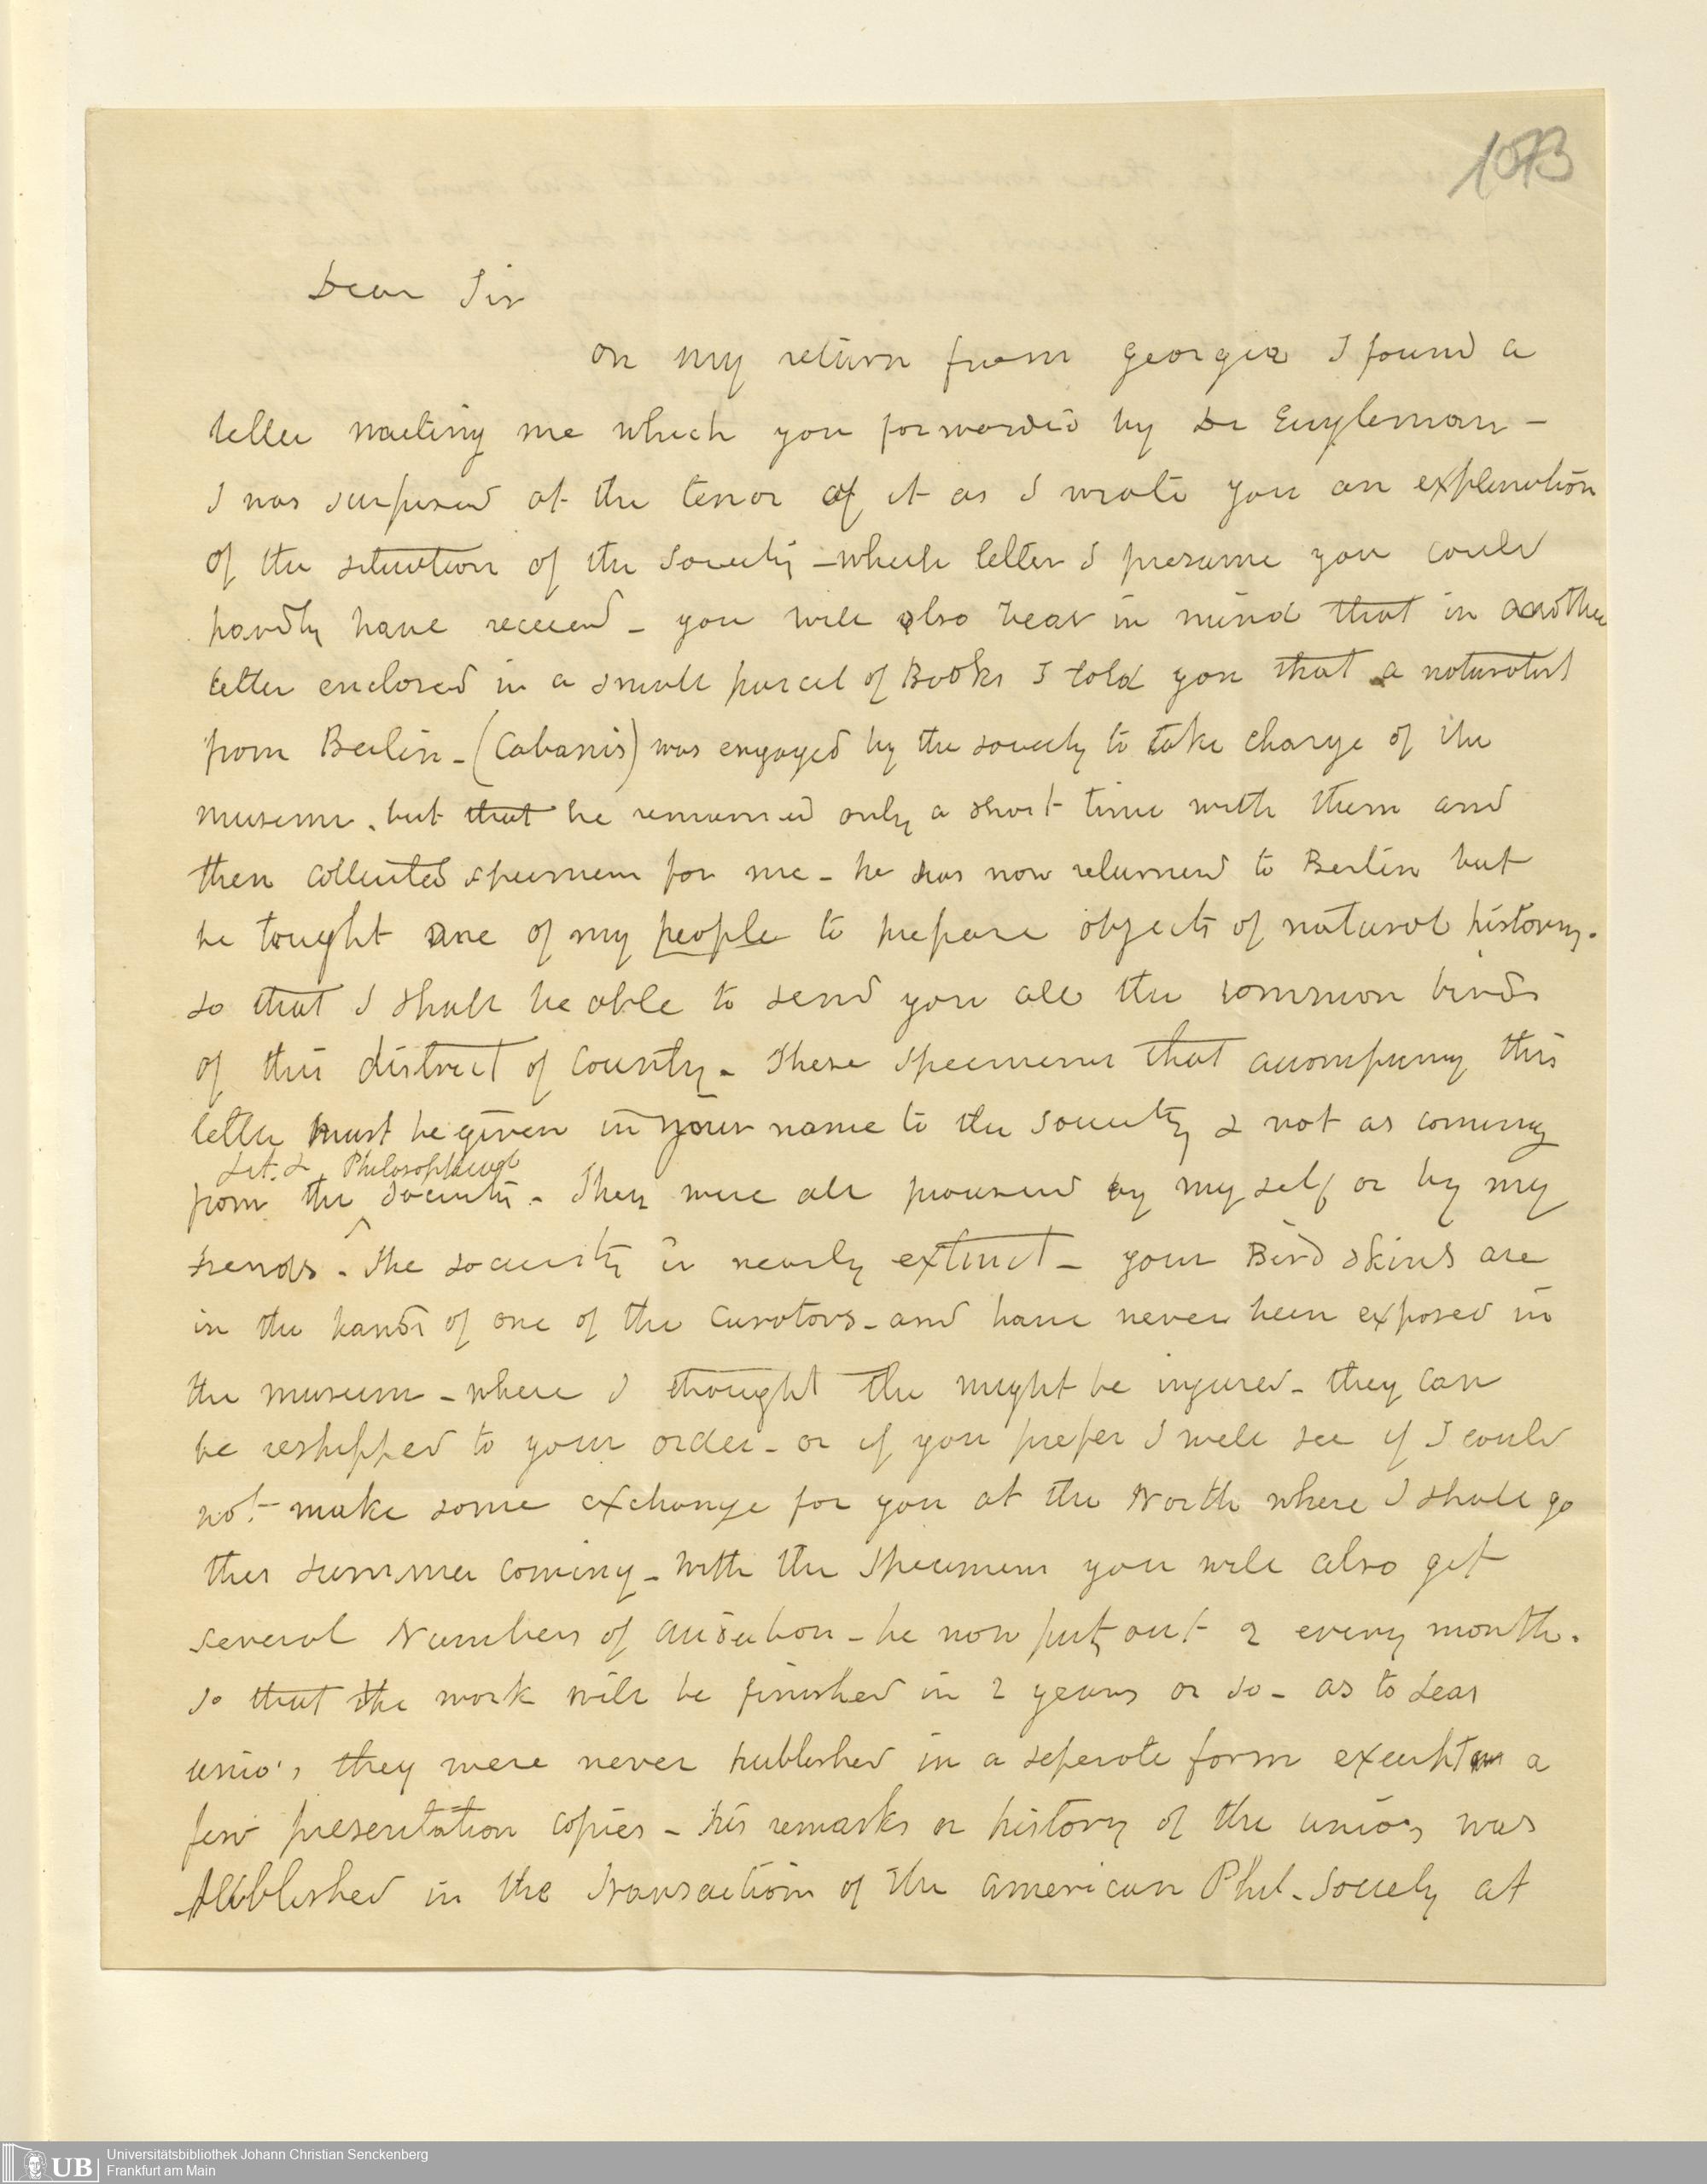 1073
Dear Sir
on my return from georgia I found a
letter waiting me which you forwarded by Dr Engleman -
I was surprised at the tenor of it as I wrote you an explanation
of the situation of the Society - which letter I presume you could
hardly have received - you will also bear in mind that in another
letter enclosed in a small parcel of Books I told you that a naturalist
from Berlin - (Cabanis) was engaged by the society to take charge of the
museum. but that he remained only a short time with them and
then collected specimens for me - he has now returned to Berlin but
he tought one of my people to prepare objects of natural history.
so that I shall be able to send you all the common birds
of this district of Country - These specimens that accompany this
letter must be given in your name to the Society & not as coming
Lit. & Philosophical
from the Society - They were all procured by my self or by my
friends - The society is nearly extinct - your Bird skins are
in the hands of one of the Curators - and have never been exposed in
the museum - where I thought the might be injured - they can
be reshipped to your order - or if you prefer I will see if I could
not make some exchange for you at the North where I shall go
this summer coming - with the specimens you will also get
several Numbers of audubon - he now puts out 2 every month.
so that the work will be finished in 2 years or so - as to Leas
unio's they were never published in a seperate form except a
few presentation copies - his remarks or history of the unio's was
published in the Transactions of the american Phil. Society at
UB
Universitätsbibliothek Johann Christian Senckenberg
Frankfurt am Main